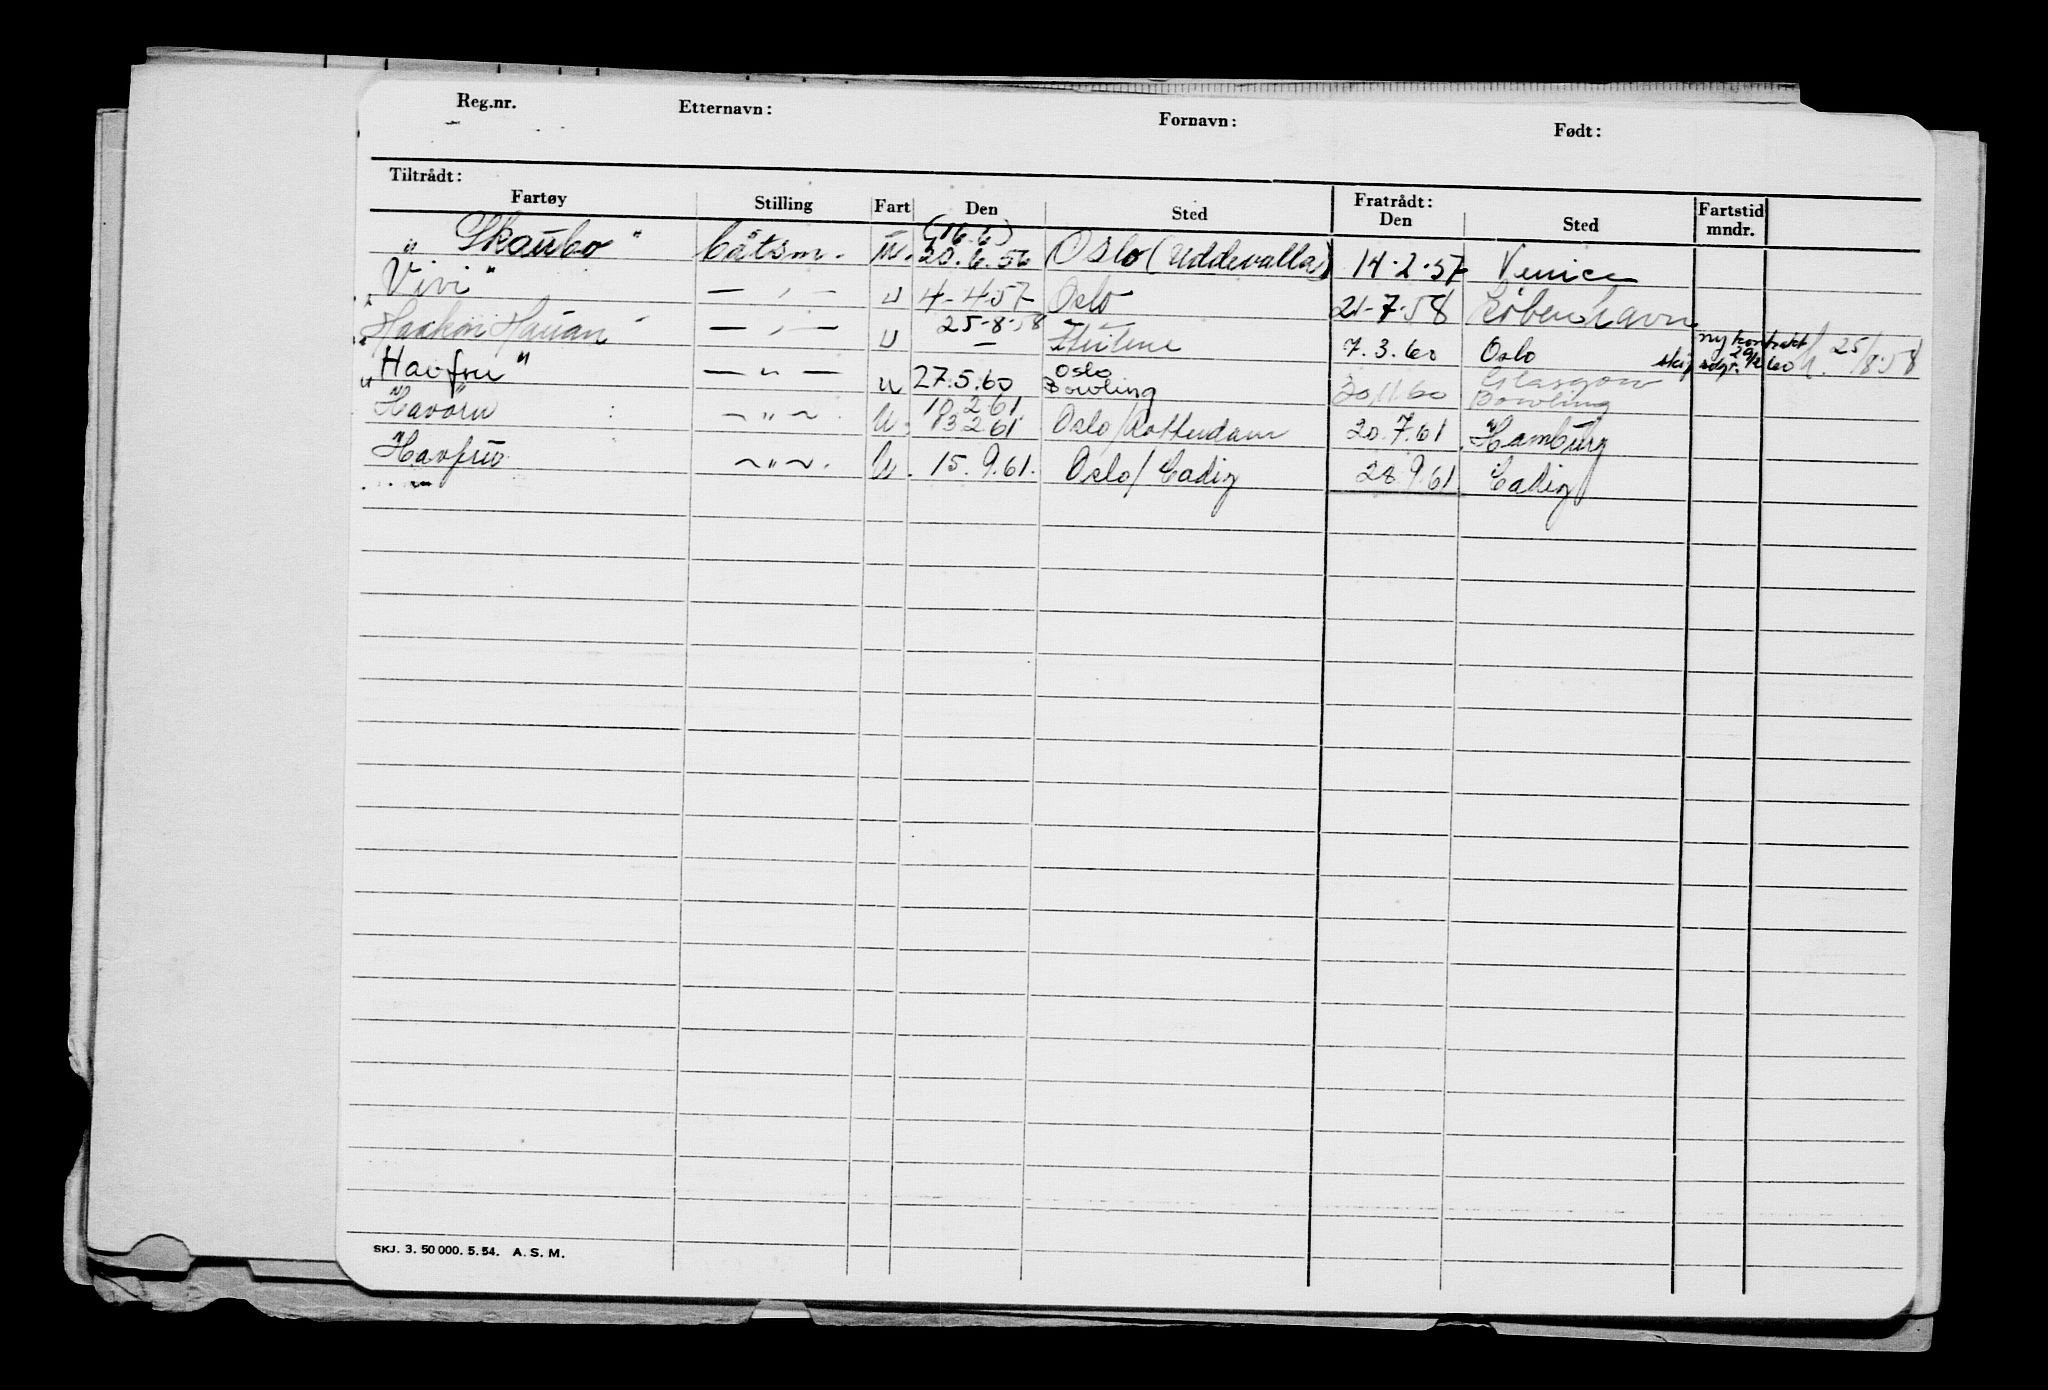 Reg.nr. Etternavn: Fornavn: Født:
Tiltrådt: Fratrådt:
Fartøy Stilling Fart Den Sted Den Sted Fartstid mndr.
(16.6)
"Skaubo" båtsm. u. 20.6.56 Oslo (Uddevalla) 14.2.57 Venice
"Vivi" — , — u 4-4-57 Oslo 21-7-58 København
"Haakon Hauan" — , — u 25-8-58 — 7.3.60 Oslo ny kontrakt 25/8.58
"Havfru" — " — u 27.5.60 Oslo Bowling 30.11.60 Glasgow Bowling
"Havørn" ~ " ~ u. 10.2.61 13 2 61 Oslo/Rotterdam 20.7.61 Hamburg
"Havfru" ~ " ~. u. 15.9.61. Oslo/Cadiz 28.9.61 Cadiz
SKJ. 3. 50 000. 5. 54. A. S. M.